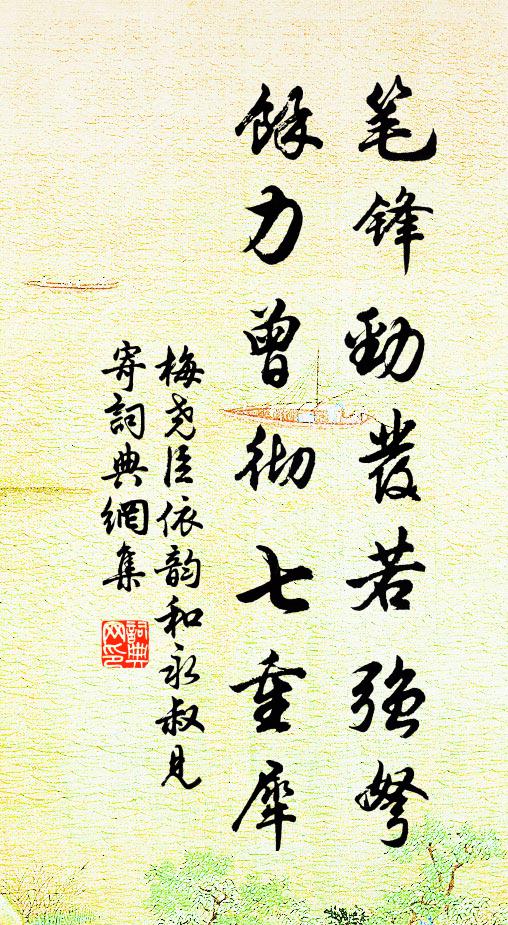 笔锋勁發若强弩
餘力曾彻七重犀
梅尧臣依韵和永叔見
寄詞典網集
詞典
网印